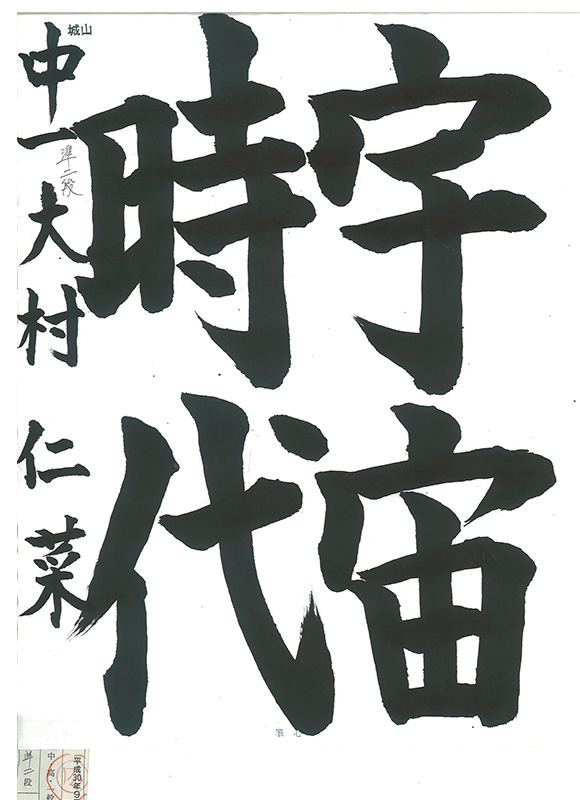 宇宙
時代
城山
中一 大村 仁菜
準二段
筆心
平成30年9
中・高・一
準二段